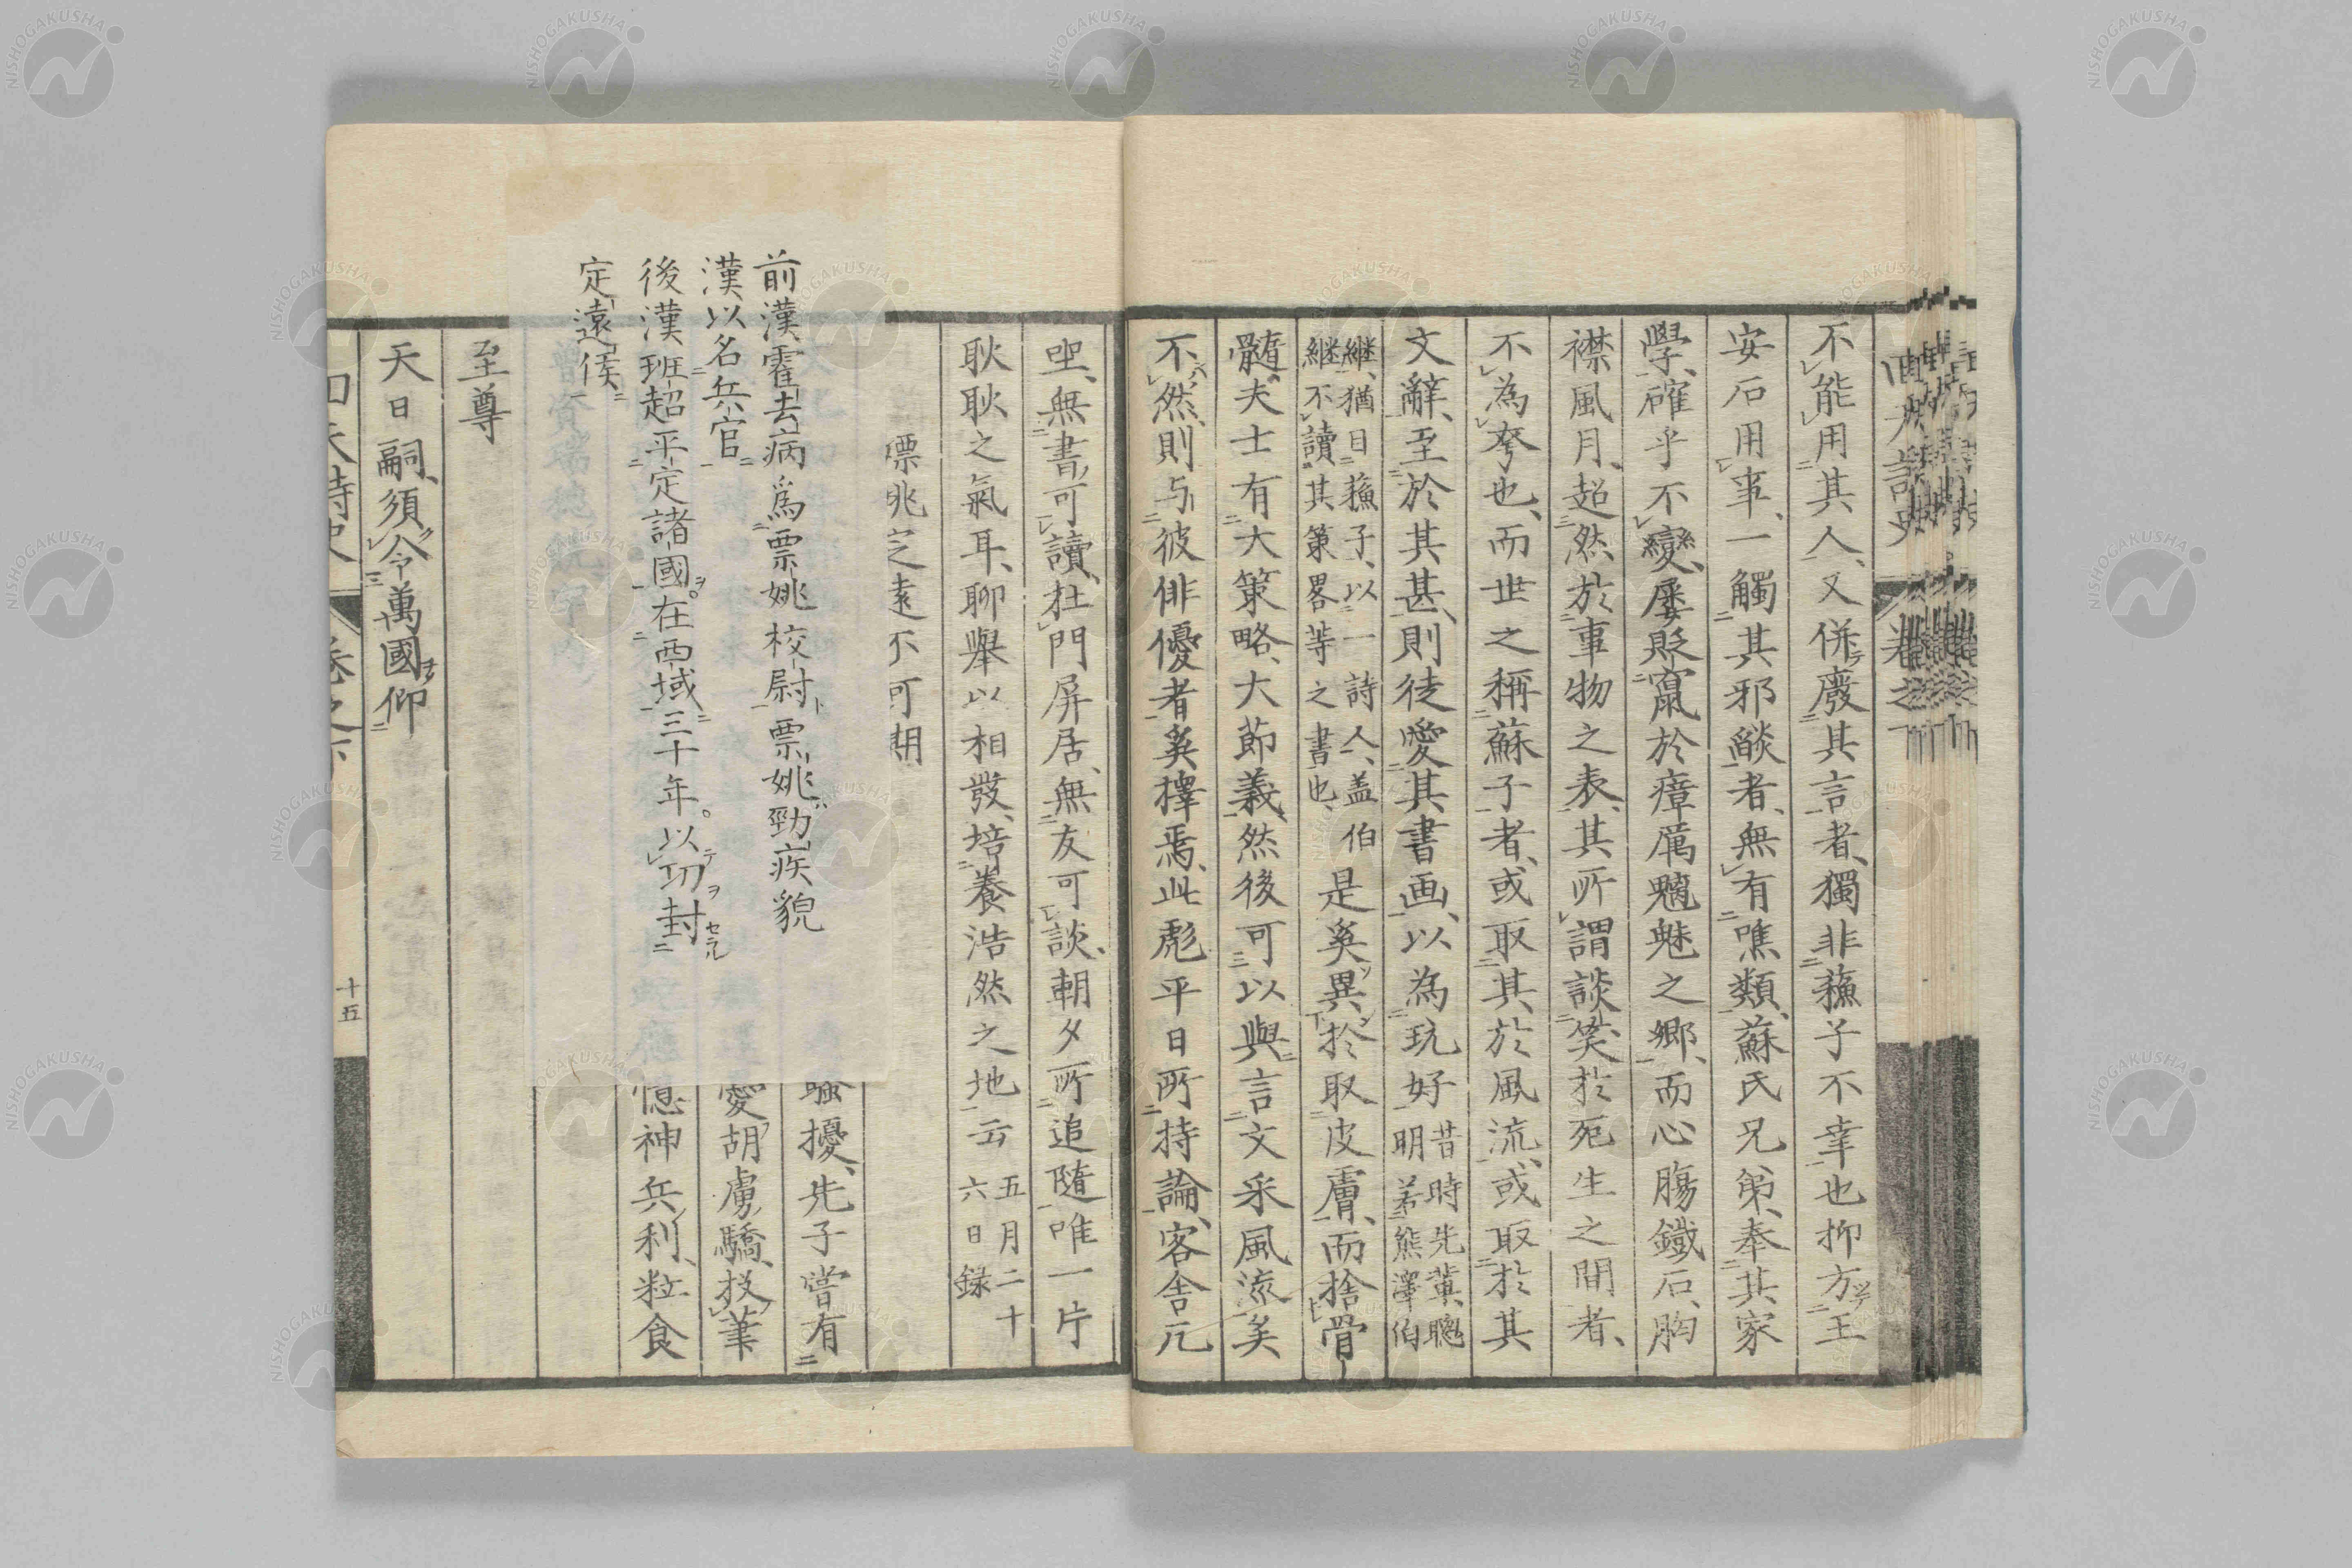 不能用其人、又併廢其言者、獨非蘓子不幸也抑方王
安石用事、一觸其邪燄者、無有噍類、蘇氏兄弟、奉其家
學、確乎不變、屢貶竄於瘴厲魑魅之鄉、而心膓鐵石、胸
襟風月、超然於事物之表、其所謂談笑於死生之間者、
不為夸也、而世之稱蘇子者、或取其於風流、或取於其
文辭、至於其甚、則徒愛其書画、以為玩好
昔時先輩、聰
明若熊澤伯
継、猶曰蘓子、以一詩人、盖伯
継不讀其策畧等之書也、
是奚異於取皮膚、而捨骨
髓、夫士有大策略、大節義、然後可以與言文采風流矣
不然、則与彼俳優者奚擇焉、此彪平日所持論、客舎冗
无書、可讀、杜門屏居、無友可談、朝夕所追隨唯一片
耿耿之氣耳、聊舉以相發、培養浩然之地云
五月二十
六日録
嫖姚定遠不可期
前漢霍去病爲票姚校尉票姚勁疾貌
漢以名兵官
後漢班超平定諸國。在西域三十年。以功封
定遠侯
騷擾、先子嘗有
愛胡虜驕、投筆
憶神兵利、粒食
至尊
天日嗣、須令萬國仰
十五
NISHOGAKUSHA